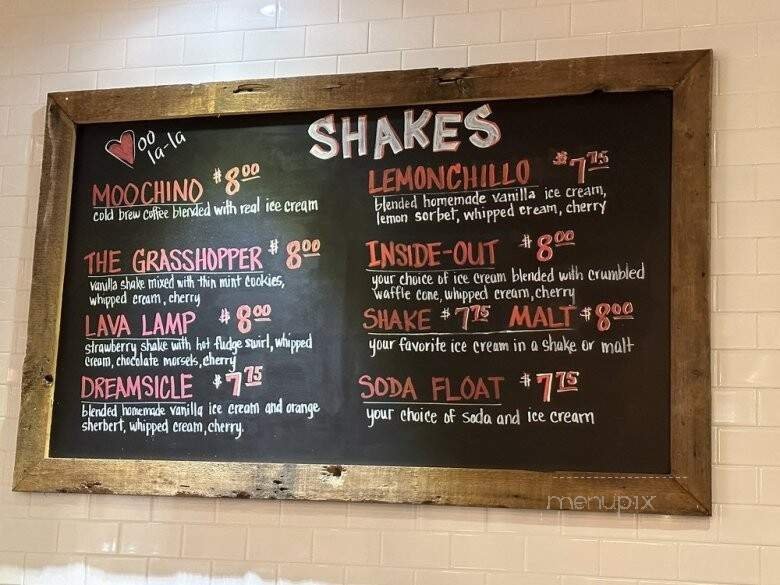 SHAKES
oo
la-la
MOOCHINO $8.00
cold brew coffee blended with real ice cream
THE GRASSHOPPER $8.00
vanilla shake mixed with thin mint cookies,
whipped cream, cherry
LAVA LAMP $8.00
strawberry shake with hot fudge swirl, whipped
cream, chocolate morsels, cherry
DREAMSICLE $7.75
blended homemade vanilla ice cream and orange
sherbert, whipped cream, cherry.
LEMONCHILLO $7.75
blended homemade vanilla ice cream,
lemon sorbet, whipped cream, cherry
INSIDE-OUT $8.00
your choice of ice cream blended with crumbled
waffle cone, whipped cream, cherry
SHAKE $7.75 MALT $8.00
your favorite ice cream in a shake or malt
SODA FLOAT $7.75
your choice of soda and ice cream
menupix